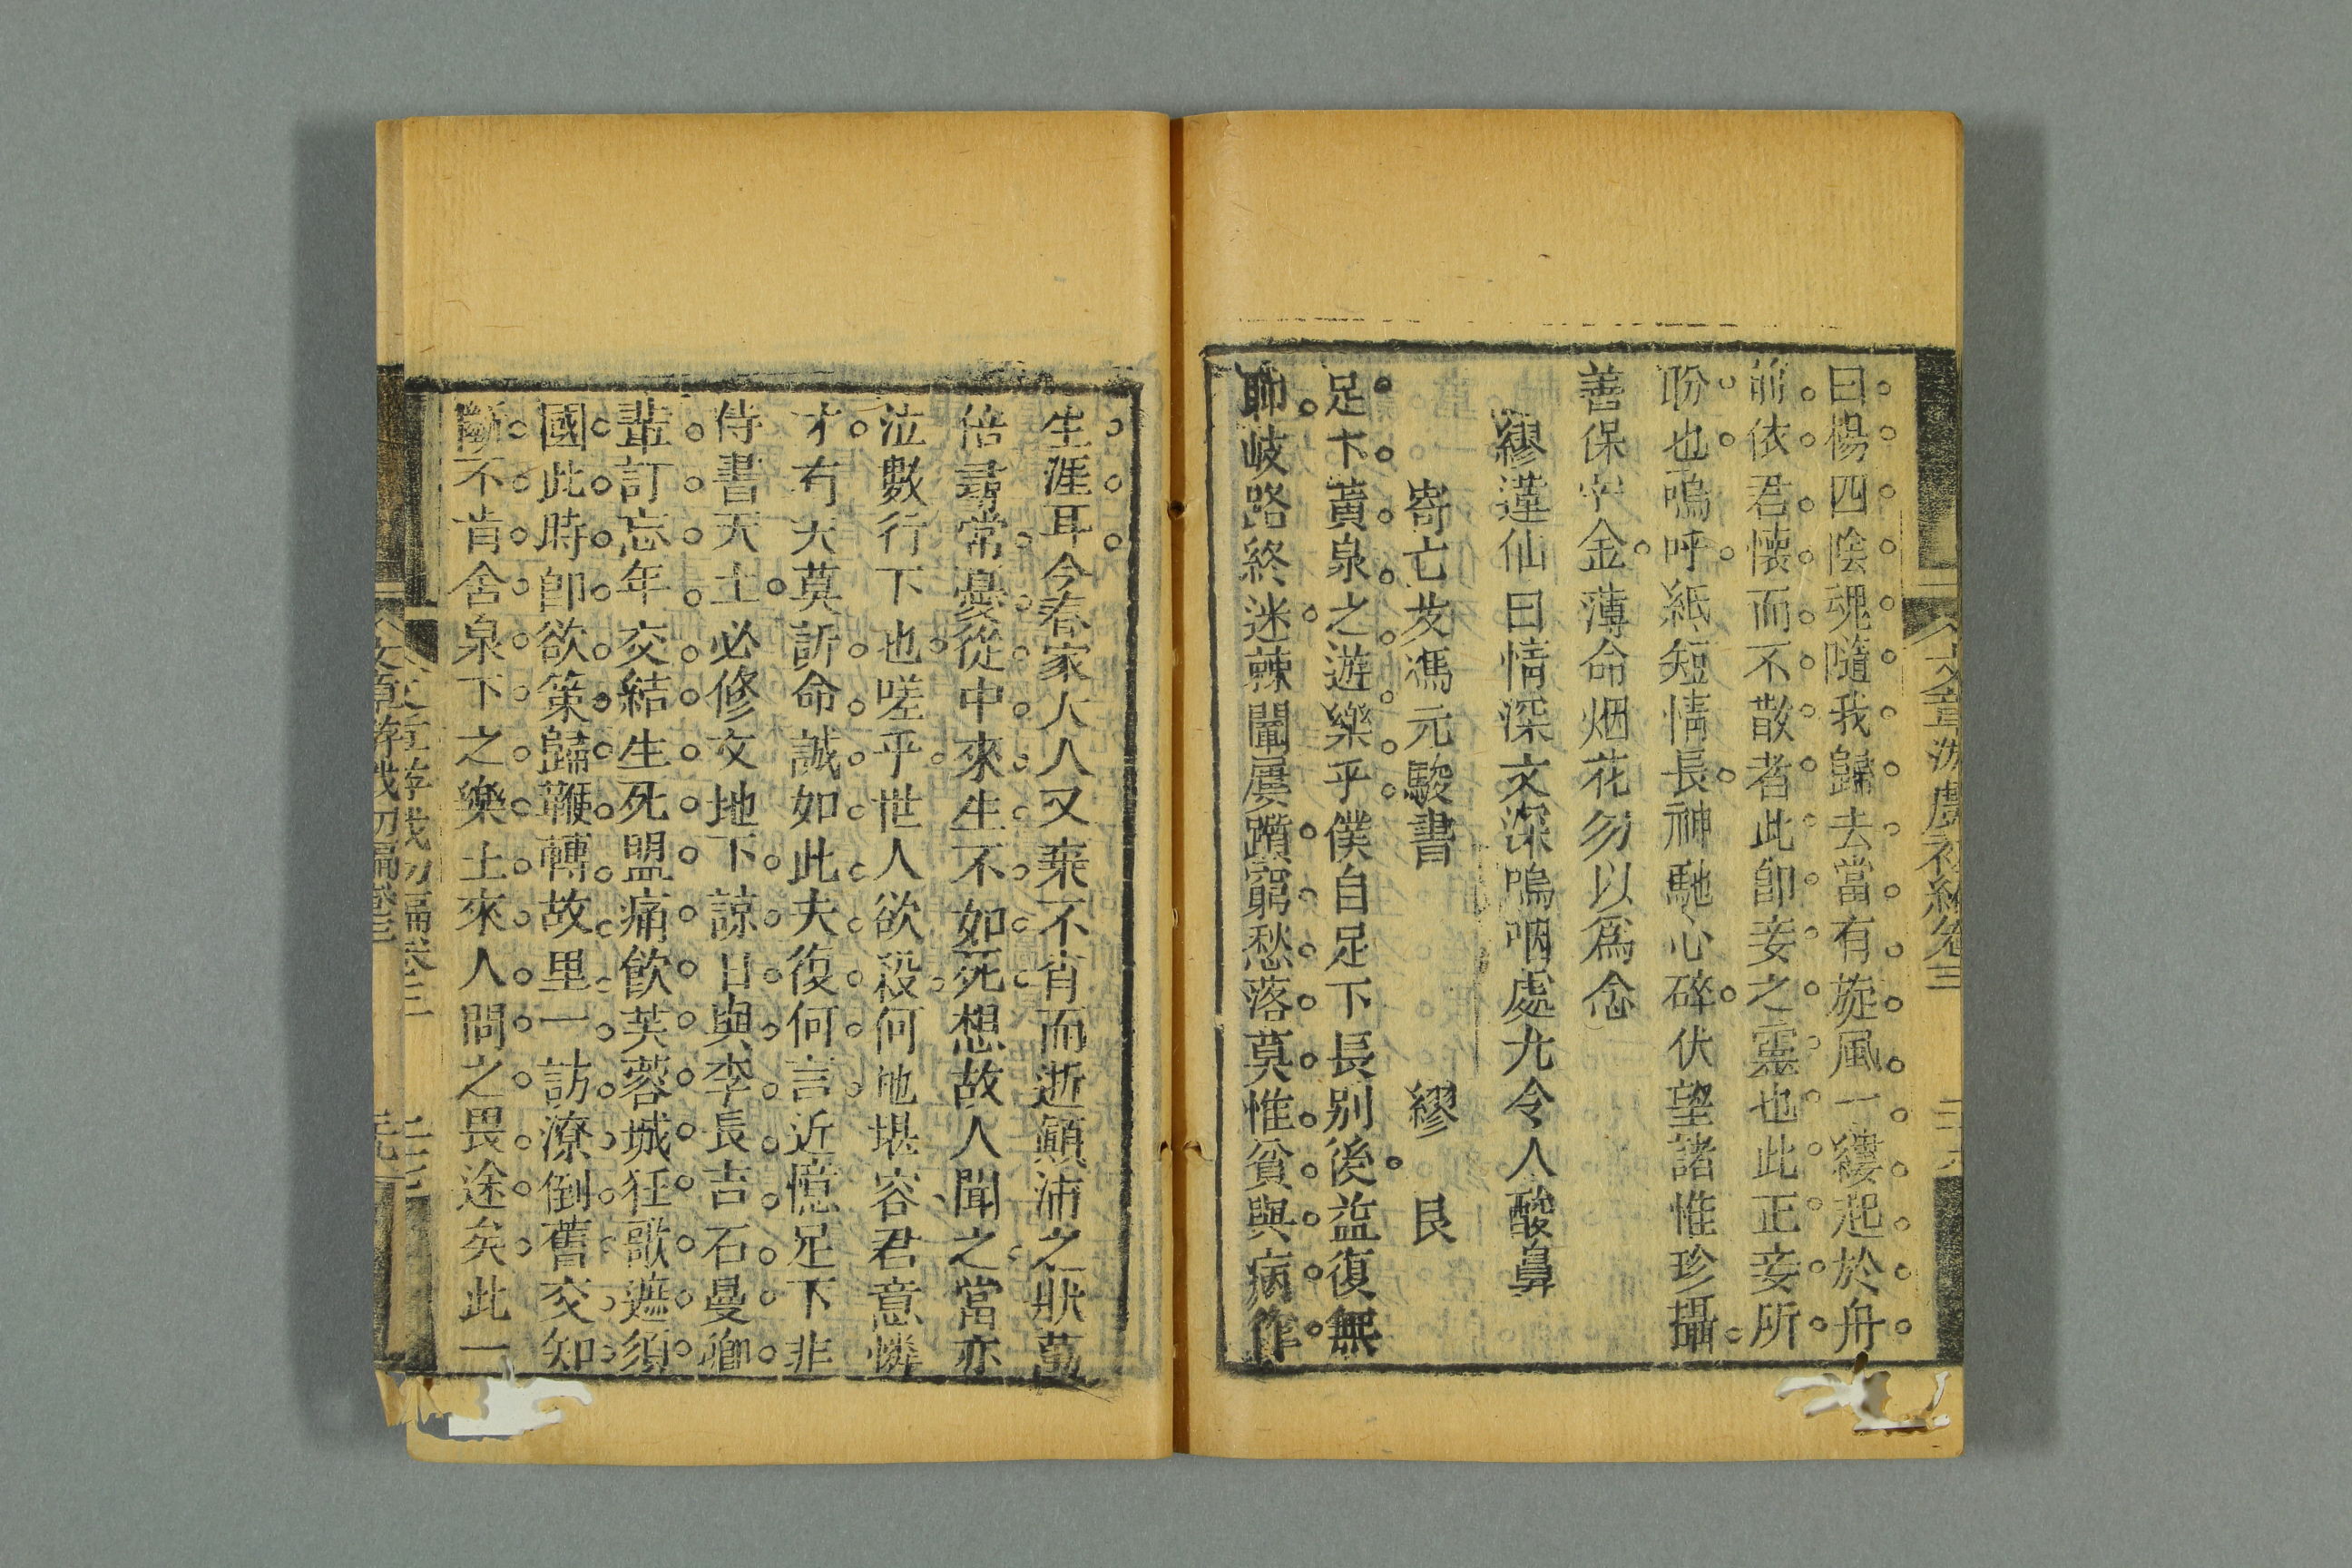 曰惕四陰魂隨我歸去當有旋風一縷起於舟
前依君懷而不散者此卽妾之靈也此正妾所
盼也嗚呼紙短情長神馳心碎伏望諸惟珍攝
善保千金薄命烟花勿以爲念
繆蓮仙曰情深文深嗚咽處尤令人酸鼻
寄亡友馮元駿書 繆艮
足下黃泉之遊樂乎僕自足下長別後益復無
聊岐路終迷棘闈屢躓窮愁落莫惟貧與病作
生涯耳今春家大人又棄不肖而逝顛沛之狀萬
倍尋常憂從中來生不如死想故人聞之當亦
泣數行下也嗟乎世人欲殺何地堪容君意憐
才有天莫訴命誠如此夫復何言近憶足下非
侍書天上必修文地下諒日與李長吉石曼卿
輩訂忘年交結生死盟痛飮芙蓉城狂歌遮須
國此時卽欲策歸鞭轉故里一訪潦倒舊交知
斷不肯舍泉下之樂土來人間之畏途矣此一
文章游戲初編卷三